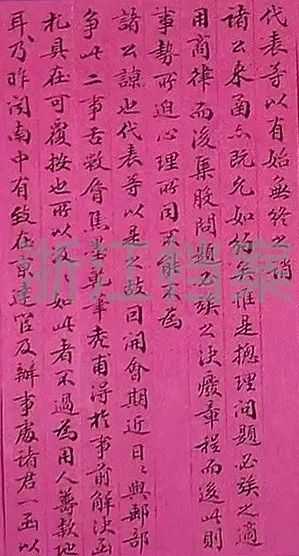 代表等以有始無終之誚
諸公來函亦既允如所矣惟是總理問題必族之適
用商律而後集股問題必族之決廢章程而後此則
事勢所迫心理所同不能不為
諸公諒也代表等以是不敢曰開會期近日日與郵部
爭此二事舌敝唇焦筆英華老甫得於事前解決函
札具在可覆按也所以及如此者不過為用人籌款地
耳乃昨閱南中有致在京達官及辦事處諸君一函以
浙江档案